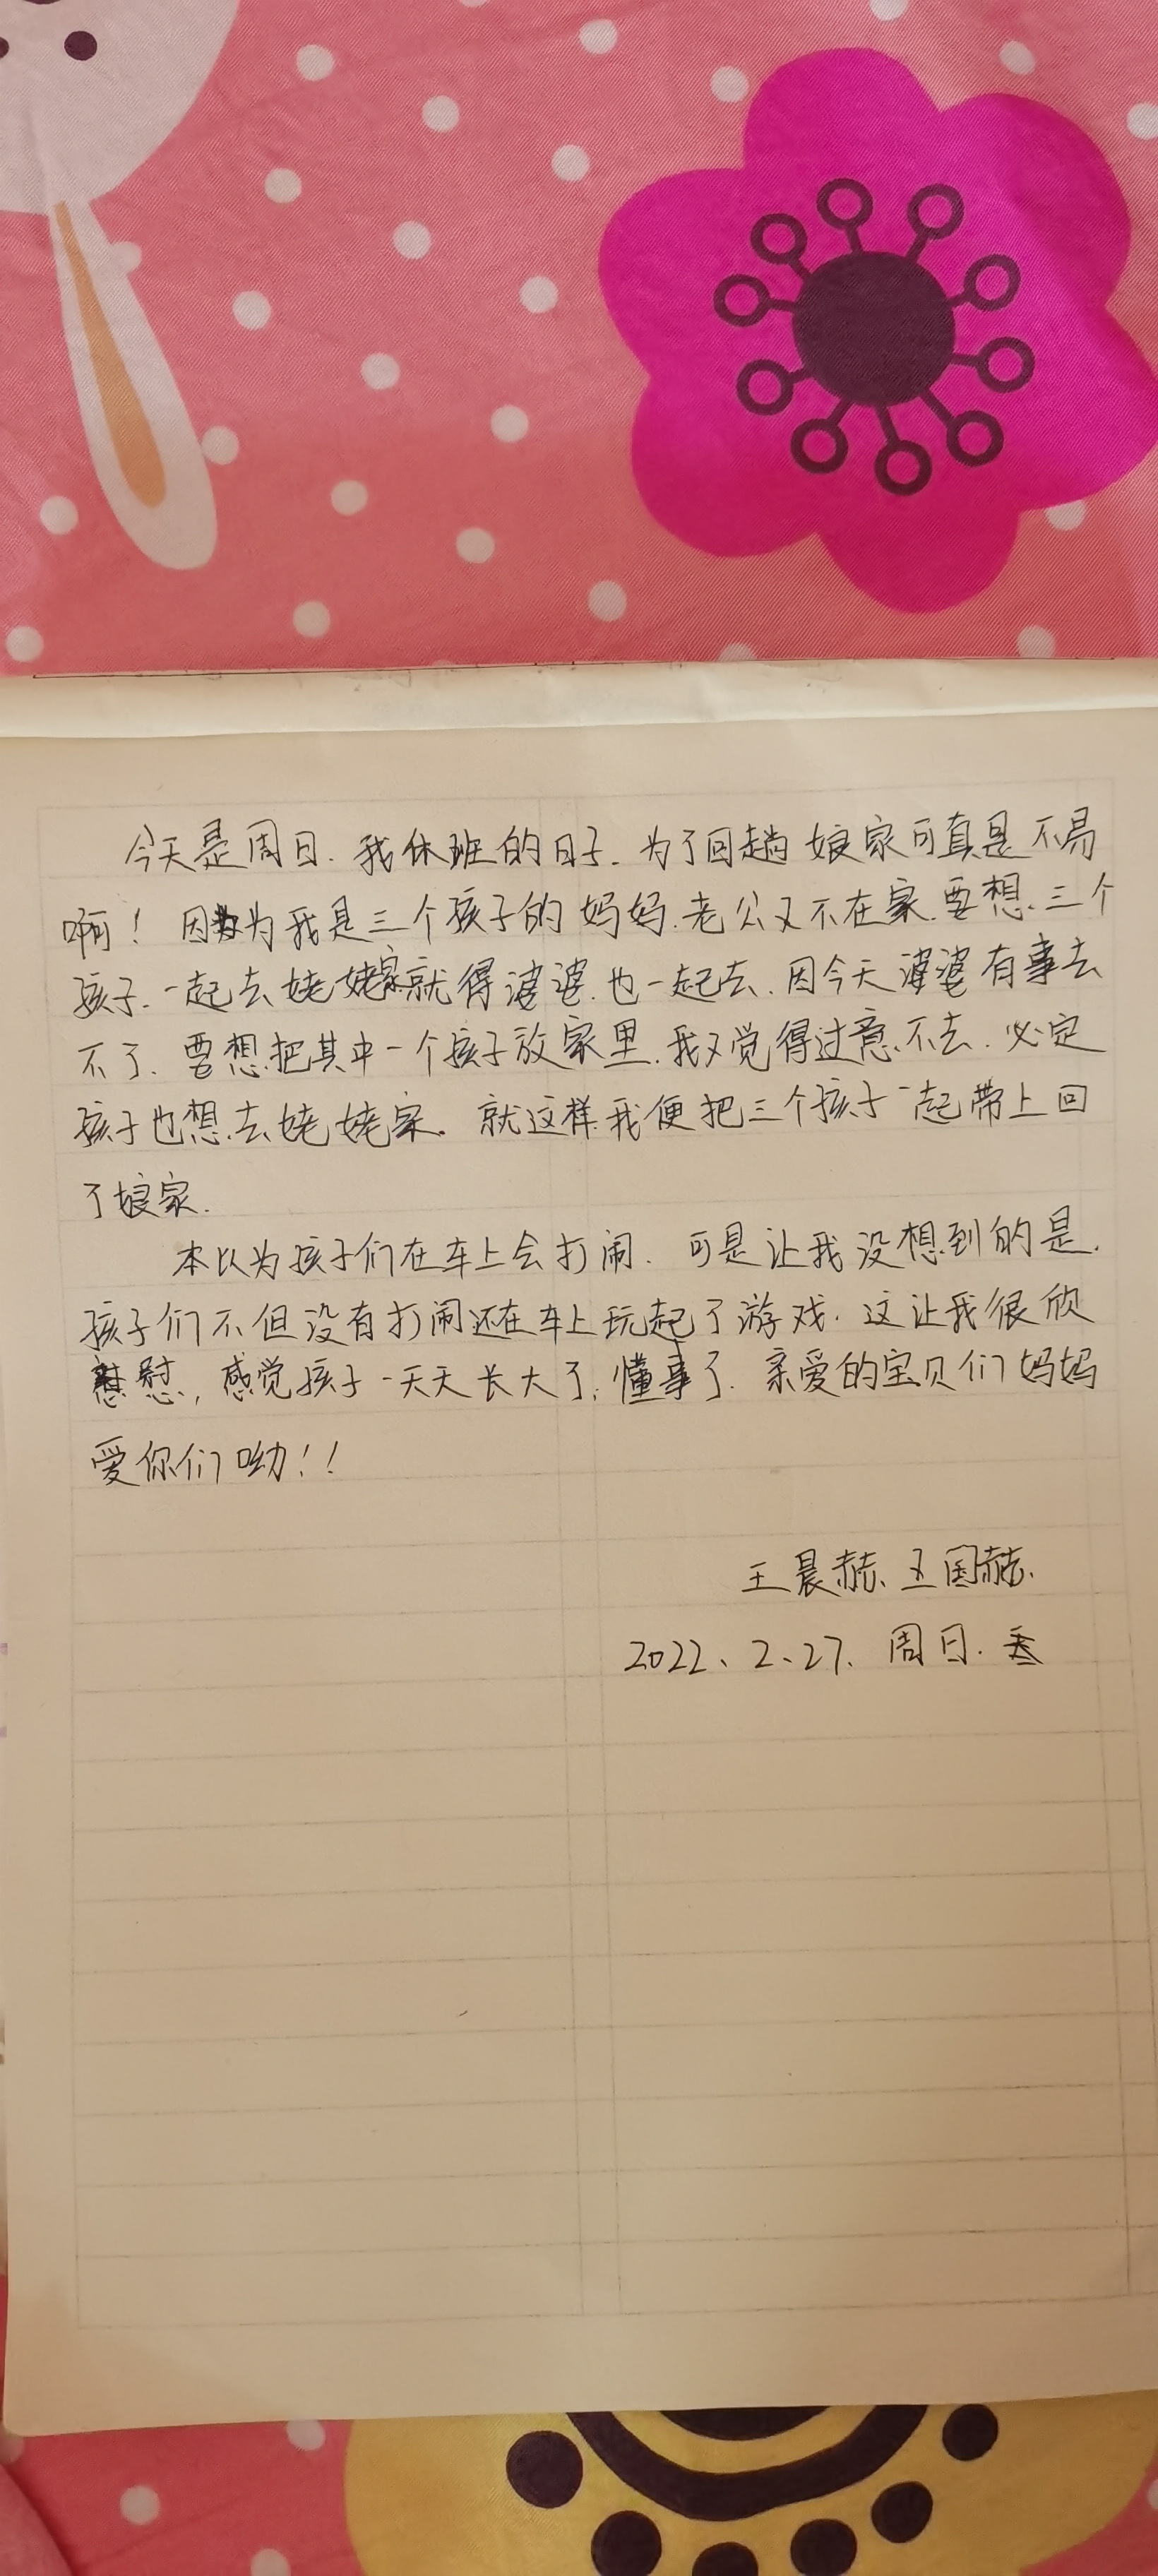 今天是周日.我休班的日子.为了回趟娘家可真是不易
啊！因为我是三个孩子的妈妈.老公又不在家.要想三个
孩子一起去姥姥家就得婆婆也一起去.因今天婆婆有事去
不了.要想把其中一个孩子放家里.我又觉得过意不去.必定
孩子也想去姥姥家.就这样我便把三个孩子一起带上回
了娘家.
本以为孩子们在车上会打闹.可是让我没想到的是.
孩子们不但没有打闹还在车上玩起了游戏.这让我很欣
慰,感觉孩子一天天长大了,懂事了.亲爱的宝贝们妈妈
爱你们呦！！
王晨赫、王国赫.
2022、2、27、周日.